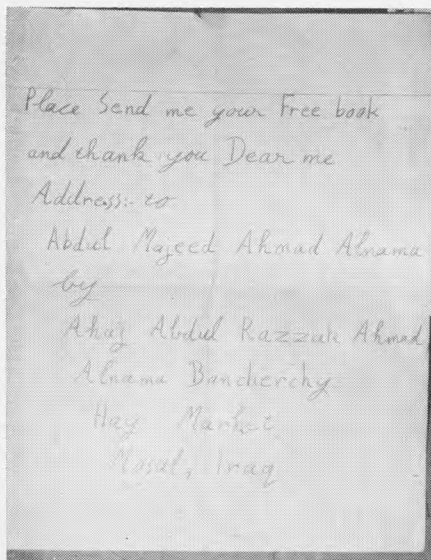 Place Send me your Free book
and thank you Dear me
Address:- to
Abdul Majeed Ahmad Alnama
by
Ahaj Abdul Razzak Ahmad
Alnama Bancherchy
Hay Market
Mosul, Iraq